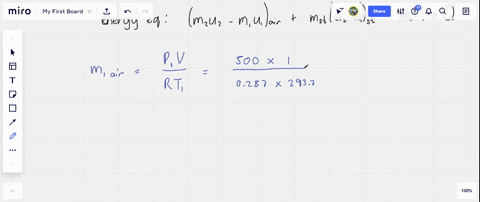 miro My First Board Share
energy eq: (m₂u₂ - m₁u₁)air +
m₁ air = P₁V / RT₁ = 500 × 1 / 0.287 × 293.2
100%